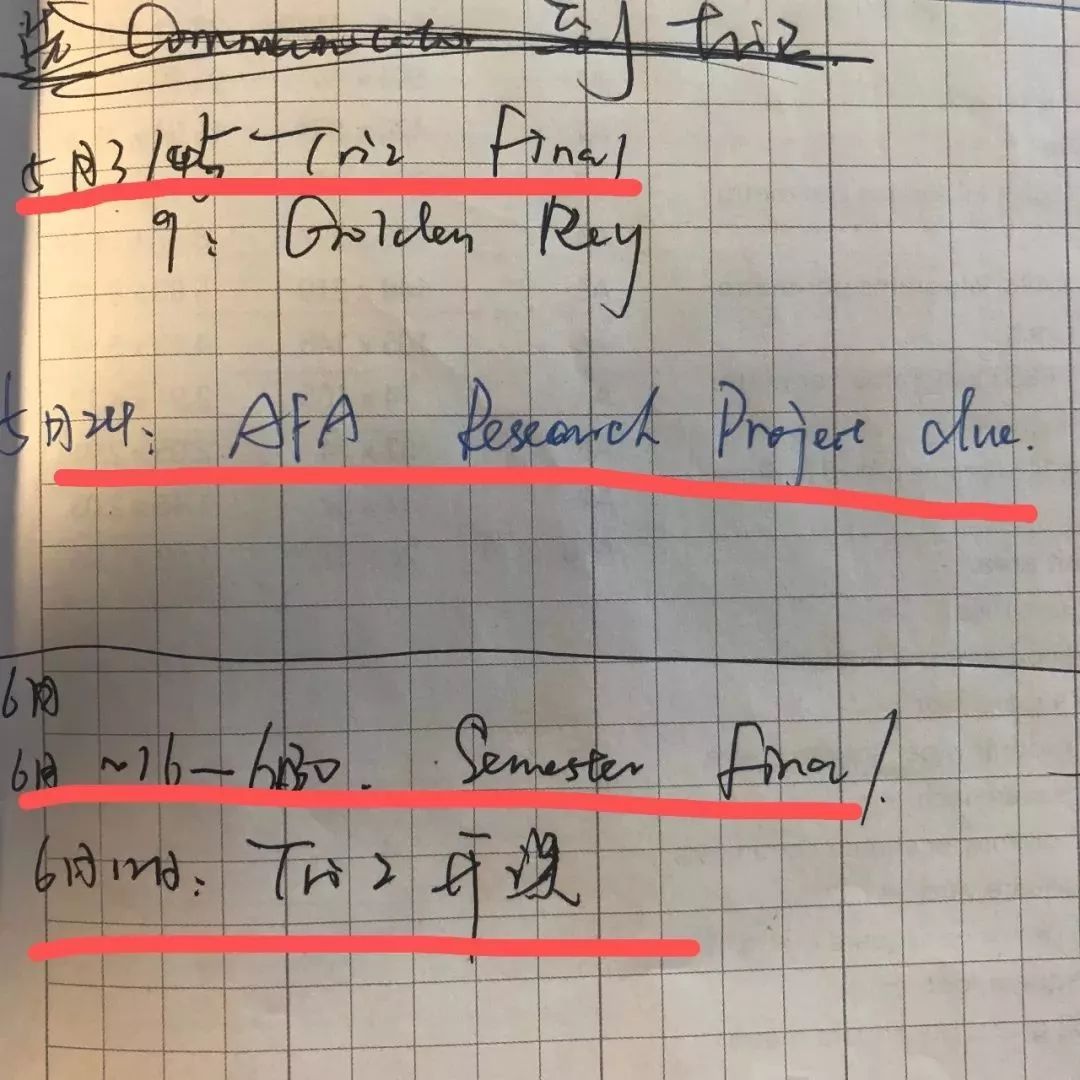 Communication Tri 2
5月31号 Tri 2 Final
9: Golden Key
5月24: AFA Research Project due.
6月
6月 ~16—6月30. Semester final
6月12日: Tri 2 开